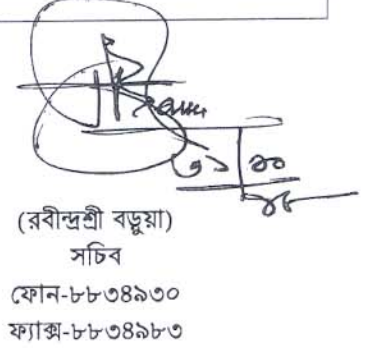 ৩১
১০
১৮
(রবীন্দ্রশ্রী বড়ুয়া)
সচিব
ফোন-৮৮৩৪৯৩০
ফ্যাক্স-৮৮৩৪৯৮৩